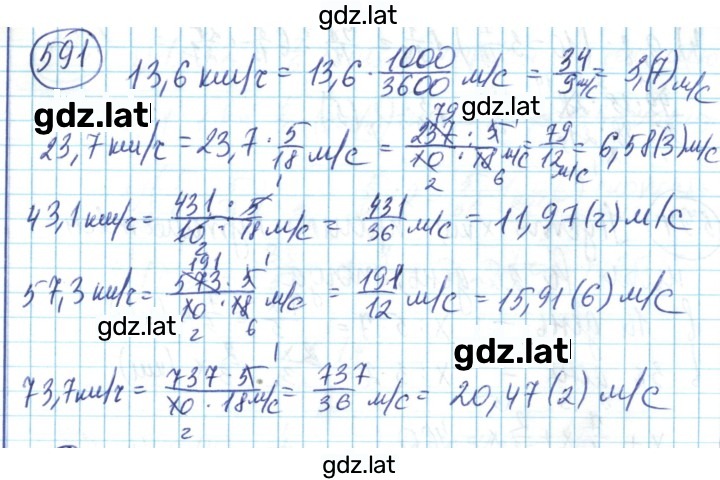 gdz.lat
591
13,6 км/ч = 13,6 · 1000/3600 м/с = 34/9 м/с = 3,(7) м/с
gdz.lat
23,7 км/ч = 23,7 · 5/18 м/с = 237 · 5/10 · 18 м/с = 79/12 м/с = 6,58(3) м/с
43,1 км/ч = 431 · 5/10 · 18 м/с = 431/36 м/с = 11,97(2) м/с
57,3 км/ч = 573 · 5/10 · 18 м/с = 191/12 м/с = 15,91(6) м/с
gdz.lat
gdz.lat
73,7 км/ч = 737 · 5/10 · 18 м/с = 737/36 м/с = 20,47(2) м/с
gdz.lat